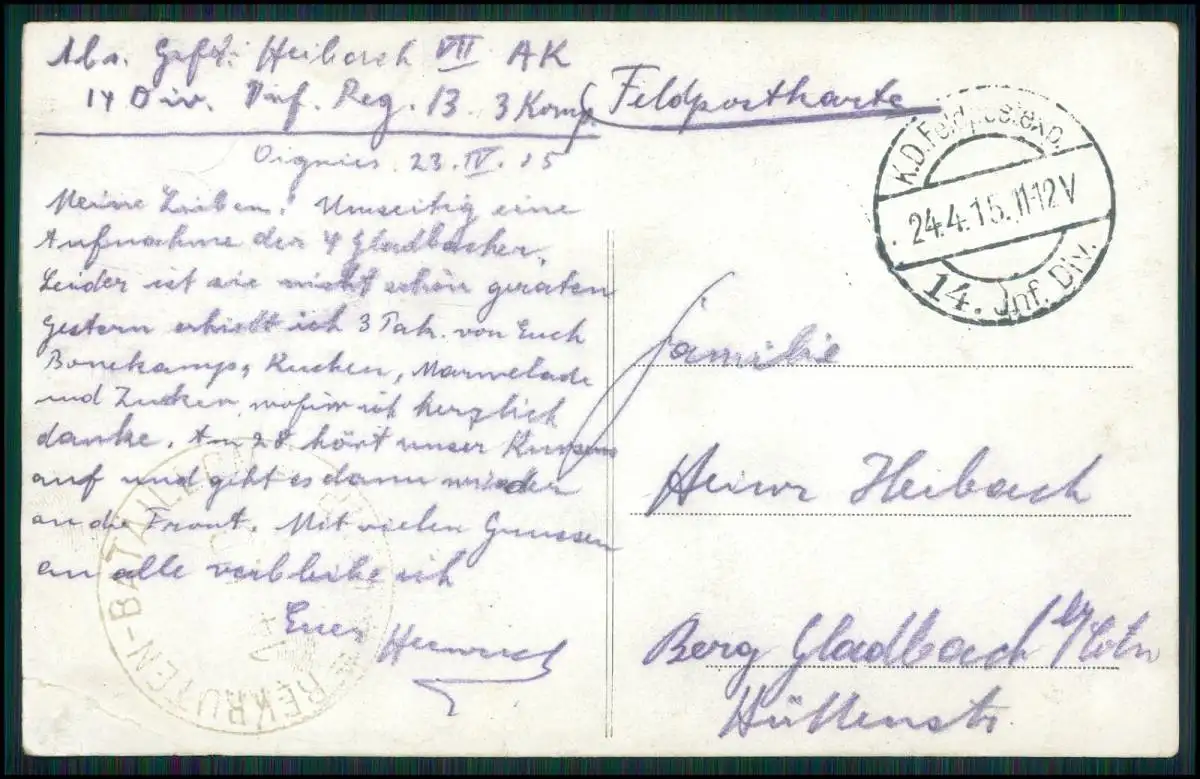 Abs. Gefr. Heibach VII AK
14 Div. Inf. Reg. 13. 3 Komp.
Feldpostkarte
Oignies 23.IV.15
Meine Lieben! Umseitig eine
Aufnahme der 4 Gladbacher,
Leider ist sie nicht schön geraten
Gestern erhielt ich 3 Pak. von Euch
Bonekamp, Kuchen, Marmelade
und Zucker, wofür ich herzlich
danke. Am 28. hört unser Kursus
auf und geht es dann wieder
an die Front. Mit vielen Grussen
an alle verbleibe ich
Euer Heinrich
K.D. Feldpostexp.
24.4.15.11-12V
14. Inf. Div.
Familie
Heinr Heibach
Berg Gladbach b/Cöln
Hüttenstr.
REKRUTEN-BATAILLON